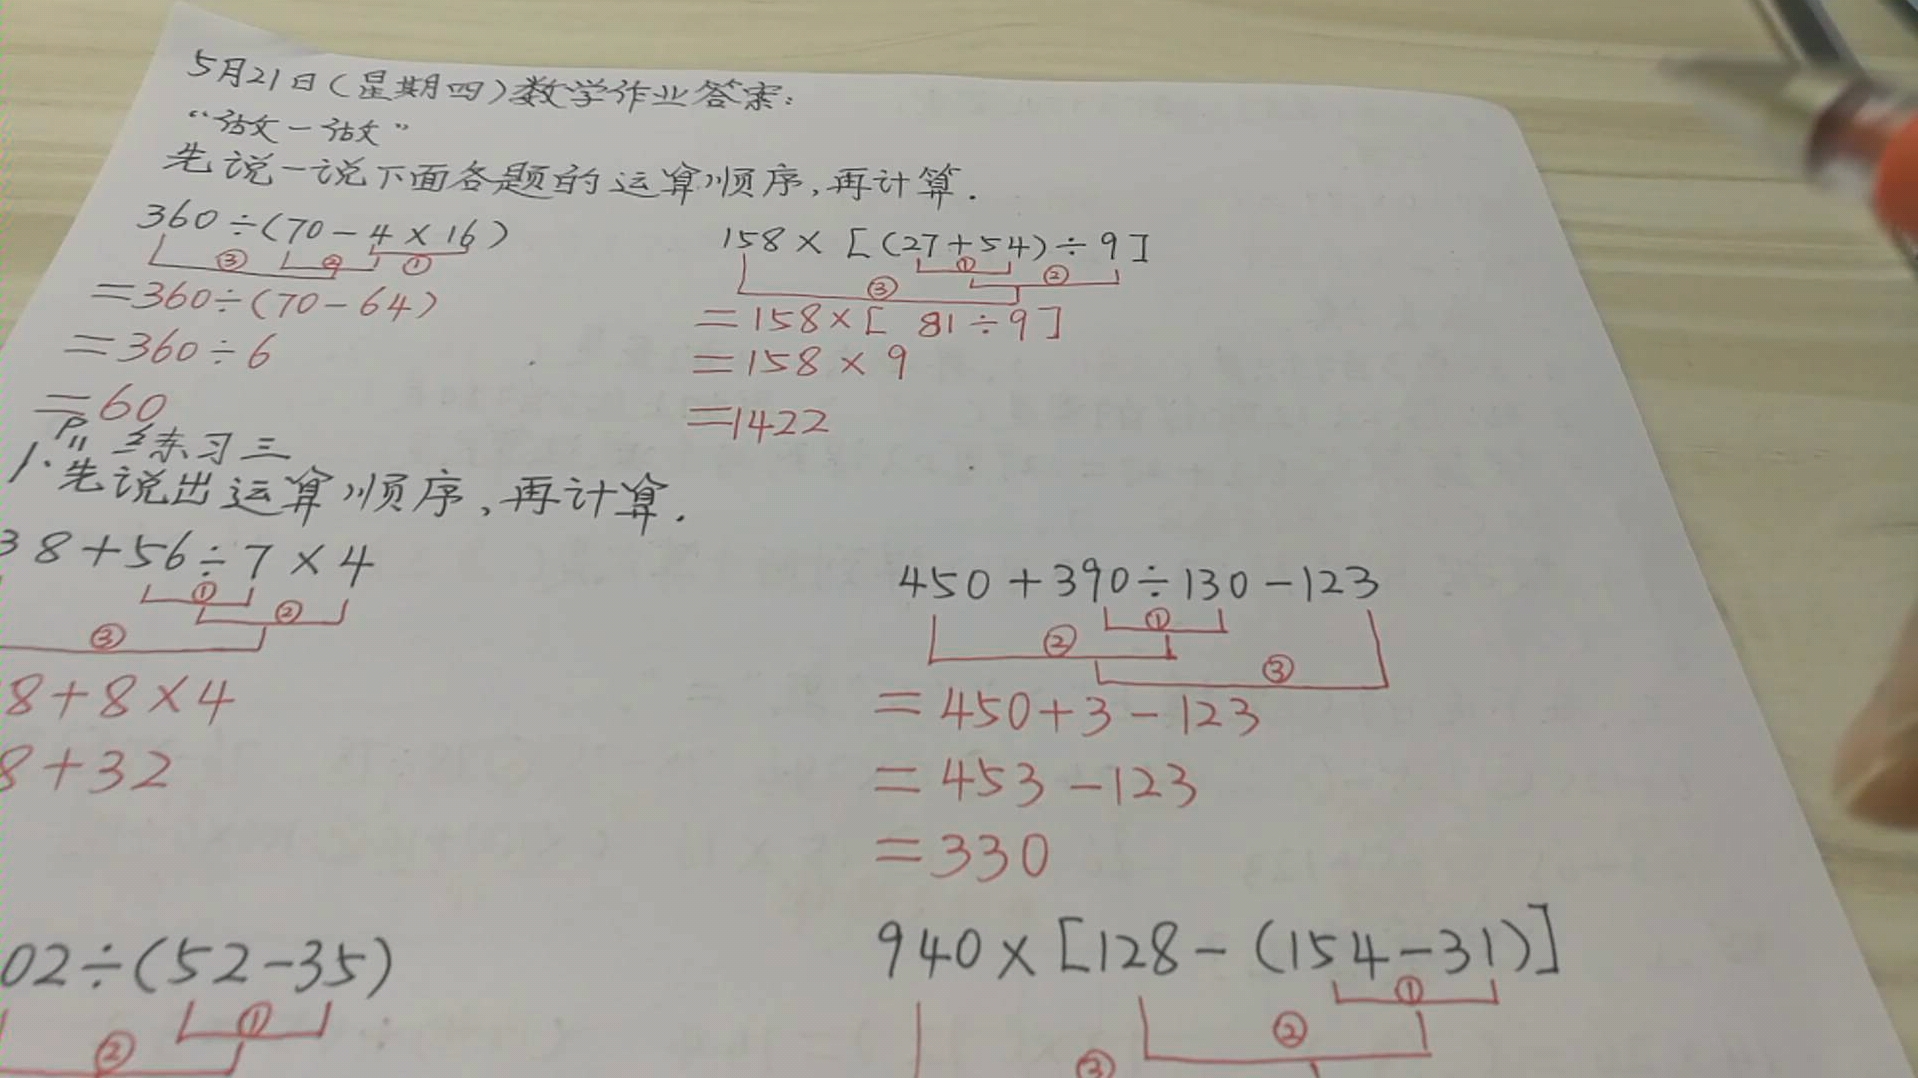 5月21日(星期四)数学作业答案:
“试一试”
先说一说下面各题的运算顺序,再计算.
360÷(70-4×16)
③ ② ①
=360÷(70-64)
=360÷6
=60
158×[(27+54)÷9]
① ②
③
=158×[ 81÷9]
=158×9
=1422
P11 练习三
1.先说出运算顺序,再计算.
38+56÷7×4
① ②
③
8+8×4
8+32
450+390÷130-123
①
② ③
=450+3-123
=453-123
=330
02÷(52-35)
①
②
940×[128-(154-31)]
①
②
③